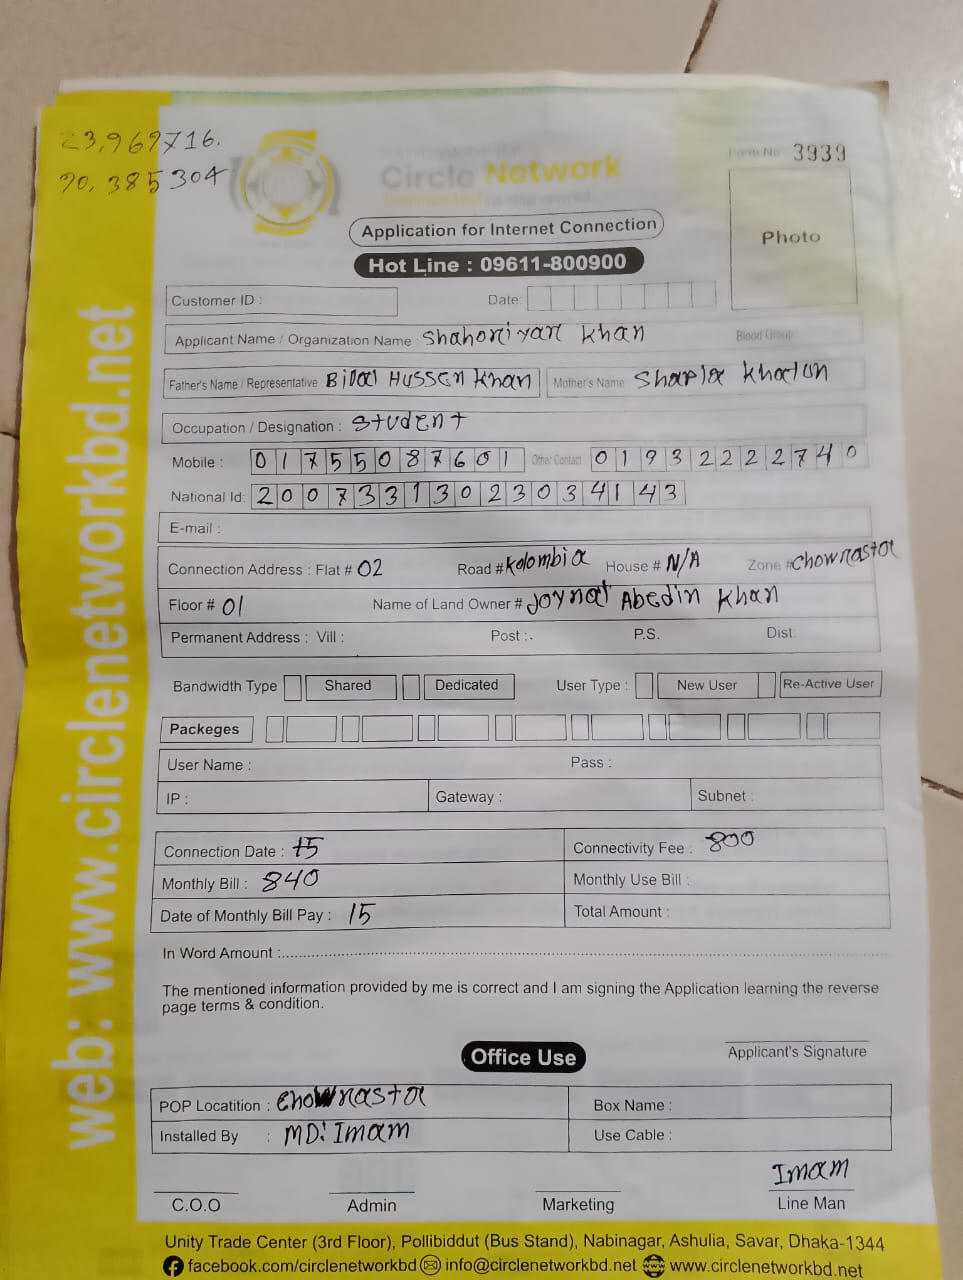 23.969716.
90.385304
Circle Network
Form No 3939
Photo
Application for Internet Connection
Hot Line : 09611-800900
Customer ID :
Date:
Applicant Name / Organization Name : Shahoriyar Khan
Blood Group
Father's Name / Representative Bilal Hussen Khan
Mother's Name Shapla Khatun
Occupation / Designation : Student
Mobile : 01755087601 Other Contact 01932222740
National Id: 20073313023034143
E-mail :
Connection Address : Flat # 02 Road # Kolombia House # N/A Zone # Chowrasta
Floor # 01 Name of Land Owner # Joynal Abedin Khan
Permanent Address : Vill : Post : P.S. Dist.
Bandwidth Type Shared Dedicated User Type : New User Re-Active User
Packeges
User Name : Pass :
IP : Gateway : Subnet :
Connection Date : 15 Connectivity Fee : 800
Monthly Bill : 840 Monthly Use Bill :
Date of Monthly Bill Pay : 15 Total Amount :
In Word Amount :
The mentioned information provided by me is correct and I am signing the Application learning the reverse
page terms & condition.
Applicant's Signature
Office Use
POP Locatition : Chowrasta Box Name :
Installed By : MD: Imam Use Cable :
Imam
C.O.O Admin Marketing Line Man
Unity Trade Center (3rd Floor), Pollibiddut (Bus Stand), Nabinagar, Ashulia, Savar, Dhaka-1344
facebook.com/circlenetworkbd info@circlenetworkbd.net www.circlenetworkbd.net
web: www.circlenetworkbd.net